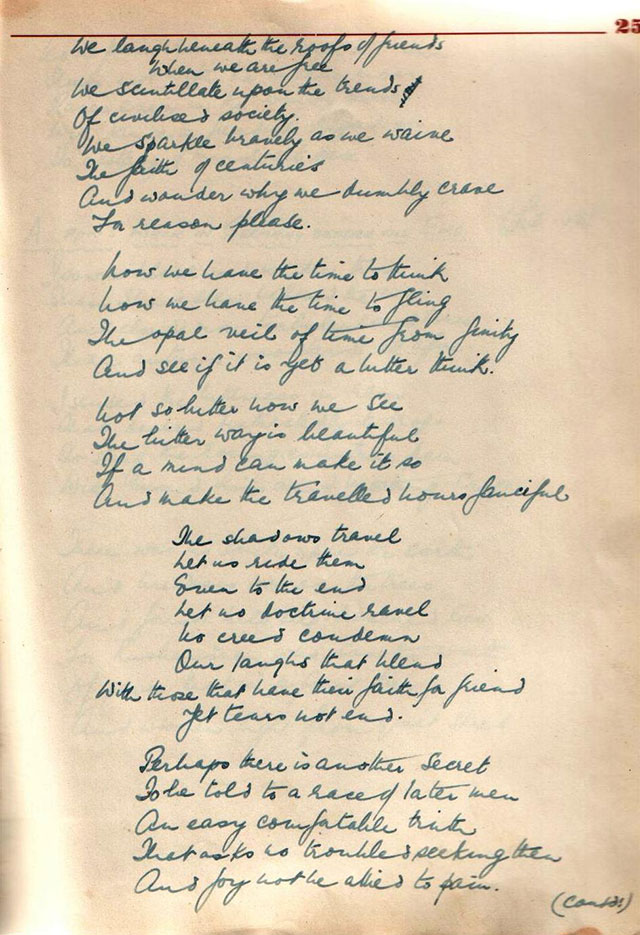 25
We laugh beneath the roofs of friends
When we are free
We scintillate upon the trends
Of civilised society.
We sparkle bravely as we waive
The faith of centuries
And wonder why we dumbly crave
For reason please.
Now we have the time to think
Now we have the time to fling
The opal veil of time from finity
And see if it is yet a bitter think.
Not so bitter now we see
The bitter way is beautiful
If a mind can make it so
And make the travelled hours fanciful
The shadows travel
Let us ride them
Even to the end
Let no doctrine ravel
No creed condemn
Our laughs that blend
With those that have their faith for friend
Yet tears not end.
Perhaps there is another secret
To be told to a race of later men
An easy comfortable truth
That asks no troubled seeking then
And joy not be allied to pain.
(Contd.)